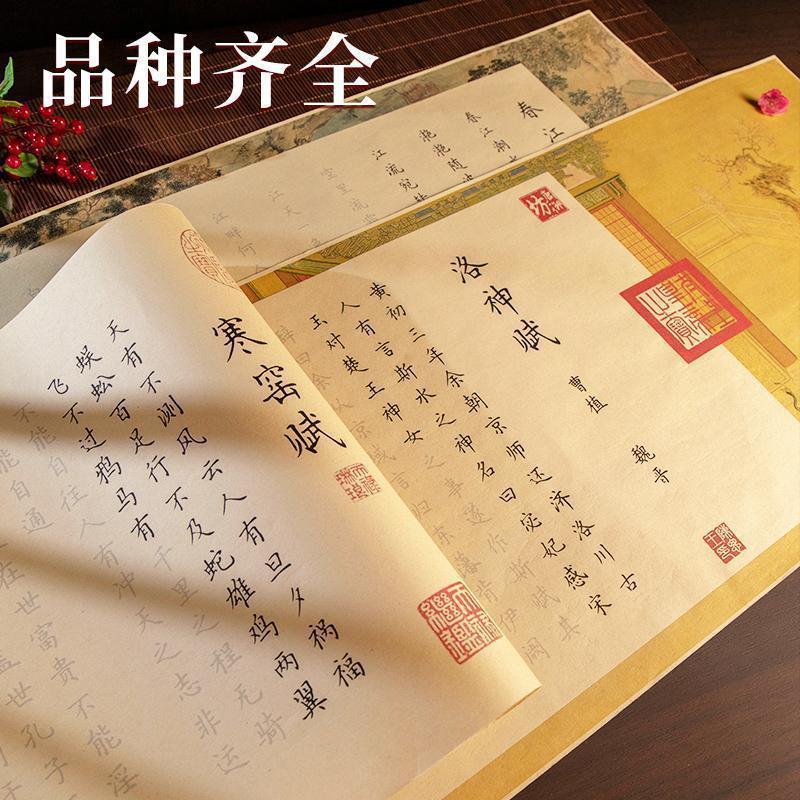 品种齐全
春江
春江潮
滟滟随
江流宛转
空里流
江天一
江畔何
洛神赋
曹植 魏晋
黄初三年余朝京师还济洛川古
人有言斯水之神名曰宓妃感宋
玉对楚王神女之事遂作斯赋其
曰余从京域言归东藩背伊阙
寒窑赋
天有不测风云人有旦夕祸福
蜈蚣百足行不及蛇雄鸡两翼
飞不过鸦马有千里之程无骑
不能自往人有冲天之志非运
能自通
在世富贵不能淫
盖世孔子